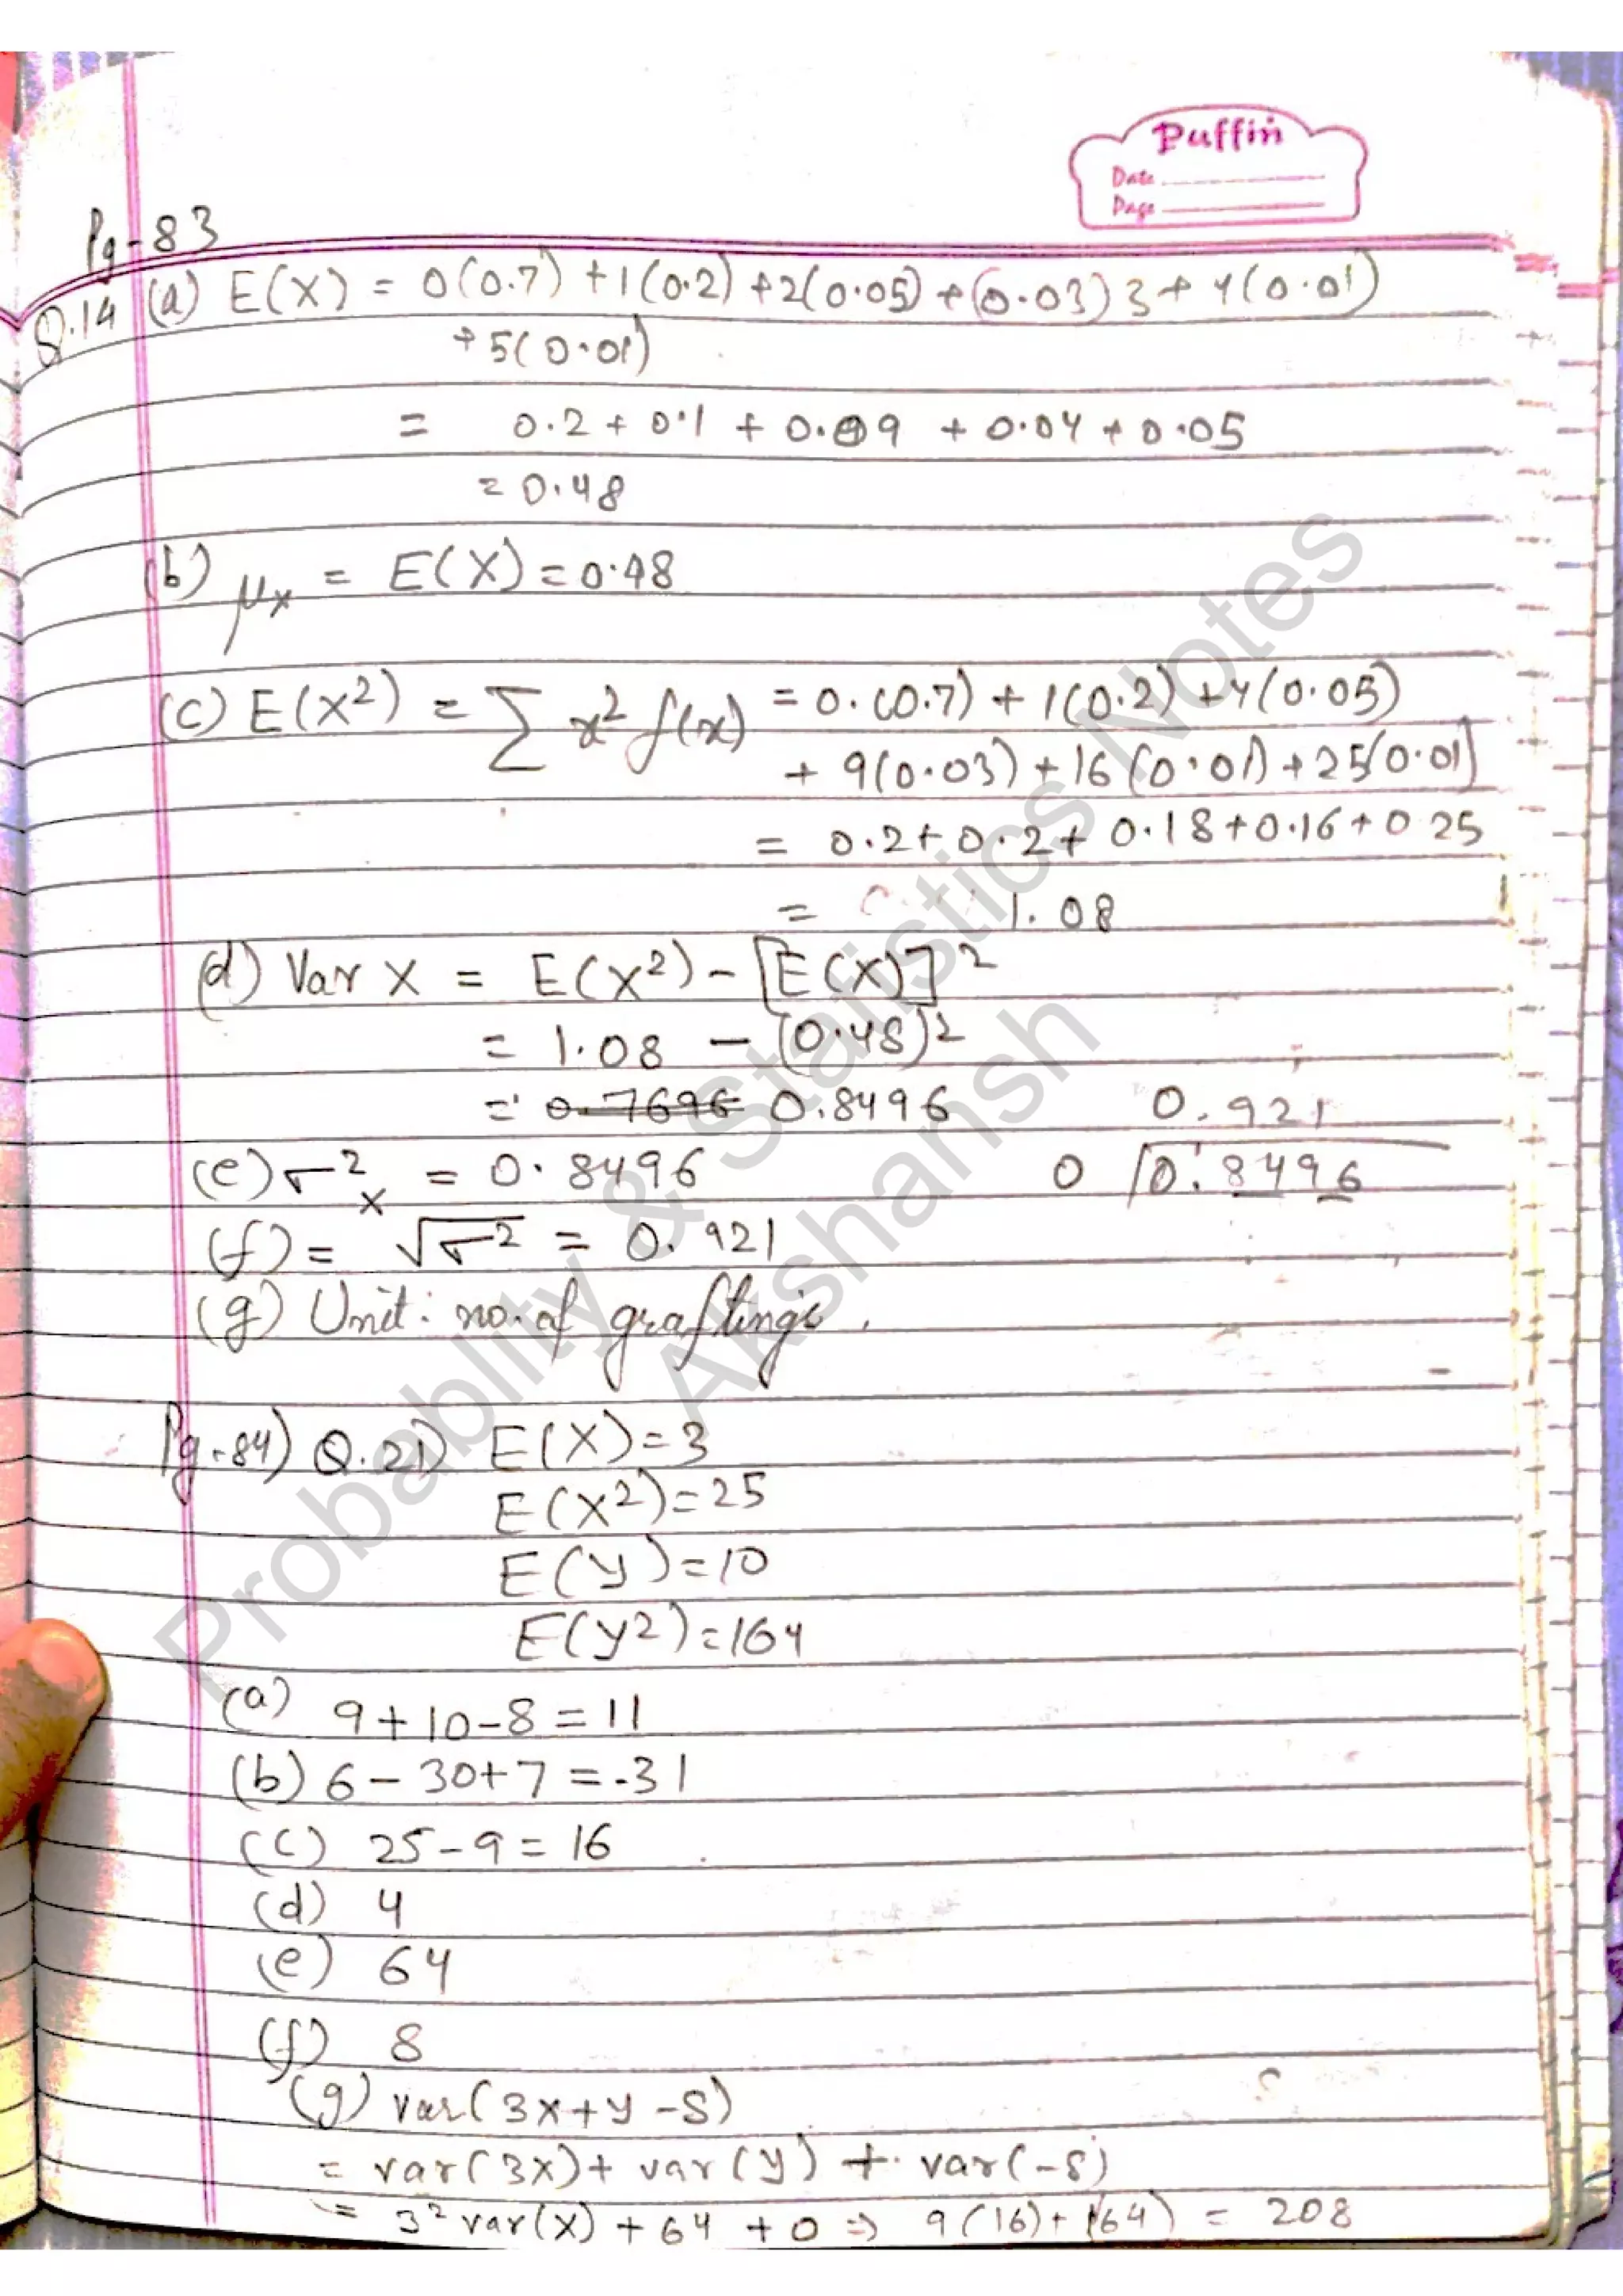 Puffin
Date
Page
Pg-83
Q.14 (a) E(X) = 0(0.7) +1(0.2) +2(0.05) +(0.03)3+ 4(0.01)
+5(0.01)
= 0.2 + 0.1 + 0.09 + 0.04 + 0.05
= 0.48
(b) μx = E(X) = 0.48
(c) E(x²) = ∑ x² f(x) = 0.(0.7) + 1(0.2) +4(0.05)
+ 9(0.03) +16(0.01) +25(0.01)
= 0.2+0.2+ 0.18+0.16+0.25
= 1.08
(d) Var X = E(X²) - [E(X)]²
= 1.08 - (0.48)²
= 0.7696 0.8496 0.921
(e) σ²x = 0.8496 0 0.8496
(f) = √σ² = 0.921
(g) Unit: no. of grafting's.
Pg-84) Q.21) E(X)=3
E(X²)=25
E(Y)=10
E(Y²)=164
(a) 9+10-8=11
(b) 6-30+7=-31
(c) 25-9=16
(d) 4
(e) 64
(f) 8
(g) var(3x+y-8)
= var(3x)+ var(y) + var(-8)
= 3² var(X) + 64 + 0 ⇒ 9(16)+(64) = 208
Probablity & Statistics Notes
Akshansh